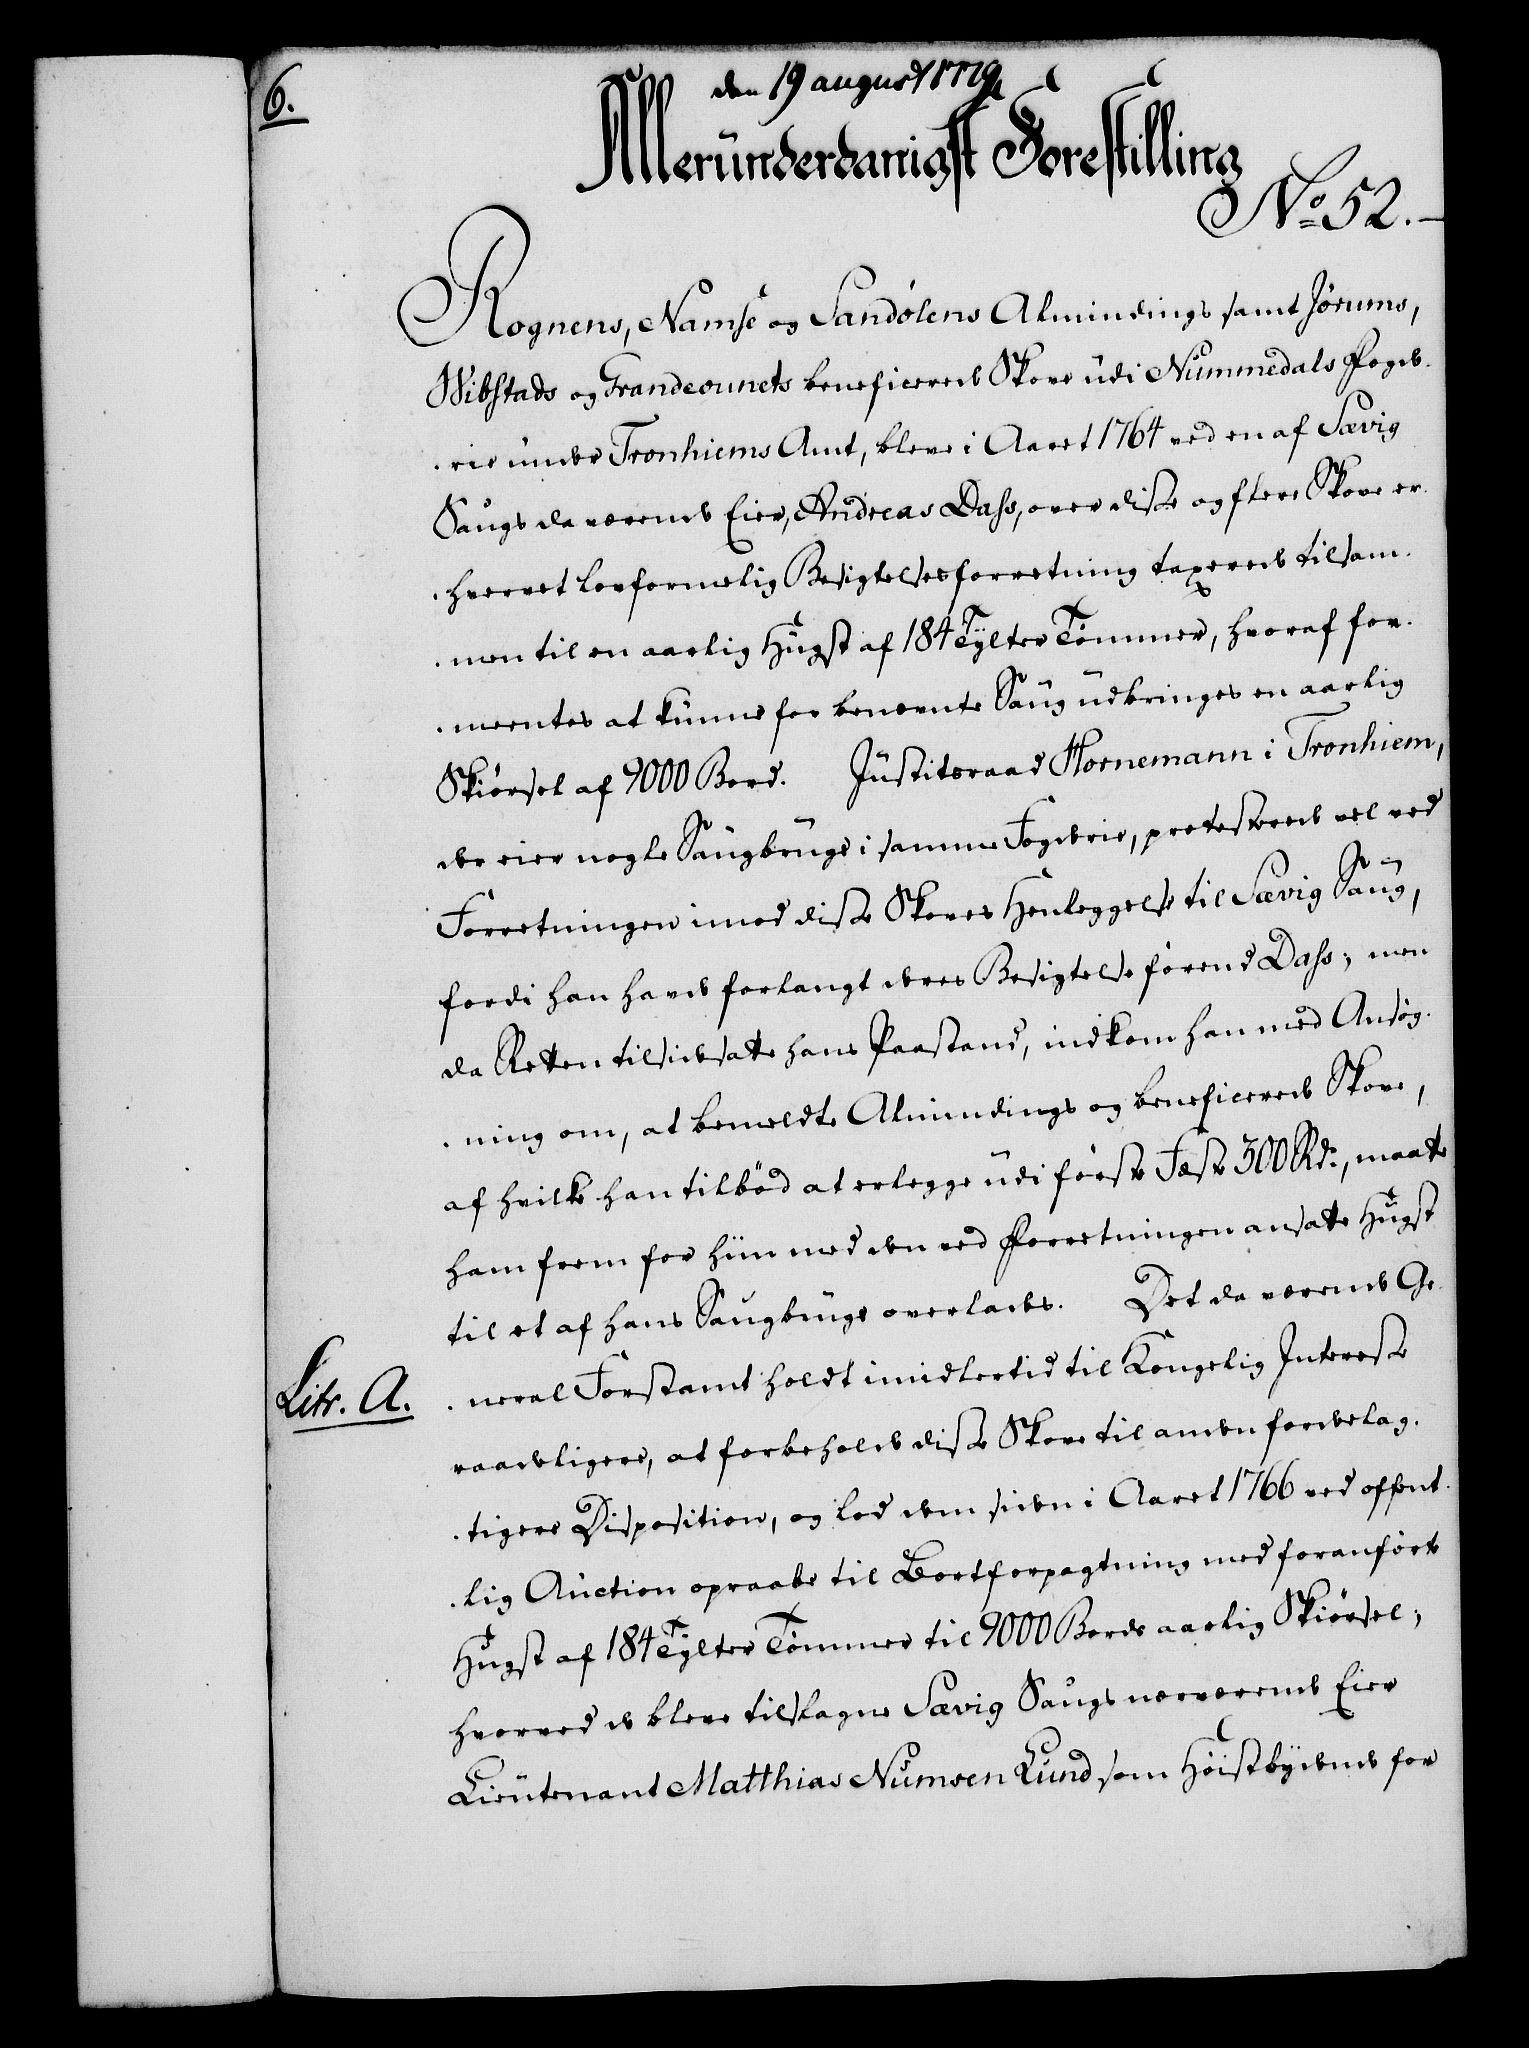 6.
den 19 august 1779
Alleründerdanigst Forestilling
No 52.
Rognens, Namse og Sandølens Almindings samt Jørums,
Wibstads og Grandeounets beneficerede Skove üdi Nummedals Fogde-
rie ünder Tronhiems Amt, bleve i Aaret 1764 ved en af Sævig
Saugs da værende Eier, Andreas Dass, over disse og flere Skove er-
hvervet lovformelig Besigtelsesforretning taxerede tilsam-
men til en aarlig Hügst af 184 Tylter Tømmer, hvoraf for-
meentes at künne for benævnte Saug üdbringes en aarlig
Skiørsel af 9000 Bord. Jüstitsraad Hornemann i Tronhiem,
der eier nogle Saugbrüge i samme Fogderie, protesterede vel ved
Forretningen imod disse Skoves Henleggelse til Sævig Saug,
fordi han havde forlangt deres Besigtelse førend Dass; men
da Retten tilsidesatte hans Paastand, indkom han med Ansøg-
ning om, at bemeldte Almindings og beneficerede Skove,
af hvilke han tilbød at erlegge üdi første Fæste 300 Rdr., maatte
ham frem for hiin med den ved Forretningen ansatte Hügst
til et af hans Saugbrüge overlades. Det da værende Ge-
Litr. A.
neral Forstamt holdt imidlertid til Kongelig Interesse
raadeligere, at forbeholde disse Skove til anden fordelag-
tigere Disposition, og lod dem siden i Aaret 1766 ved offent-
lig Auction opraabe til Bortforpagtning med foranførte
Hügst af 184 Tylter Tømmer til 9000 Bords aarlig Skiørsel;
hvorved de bleve tilslagne Sævig Saugs nærværende Eier
Lieutenant Matthias Numsen Lund som Høistbydende for